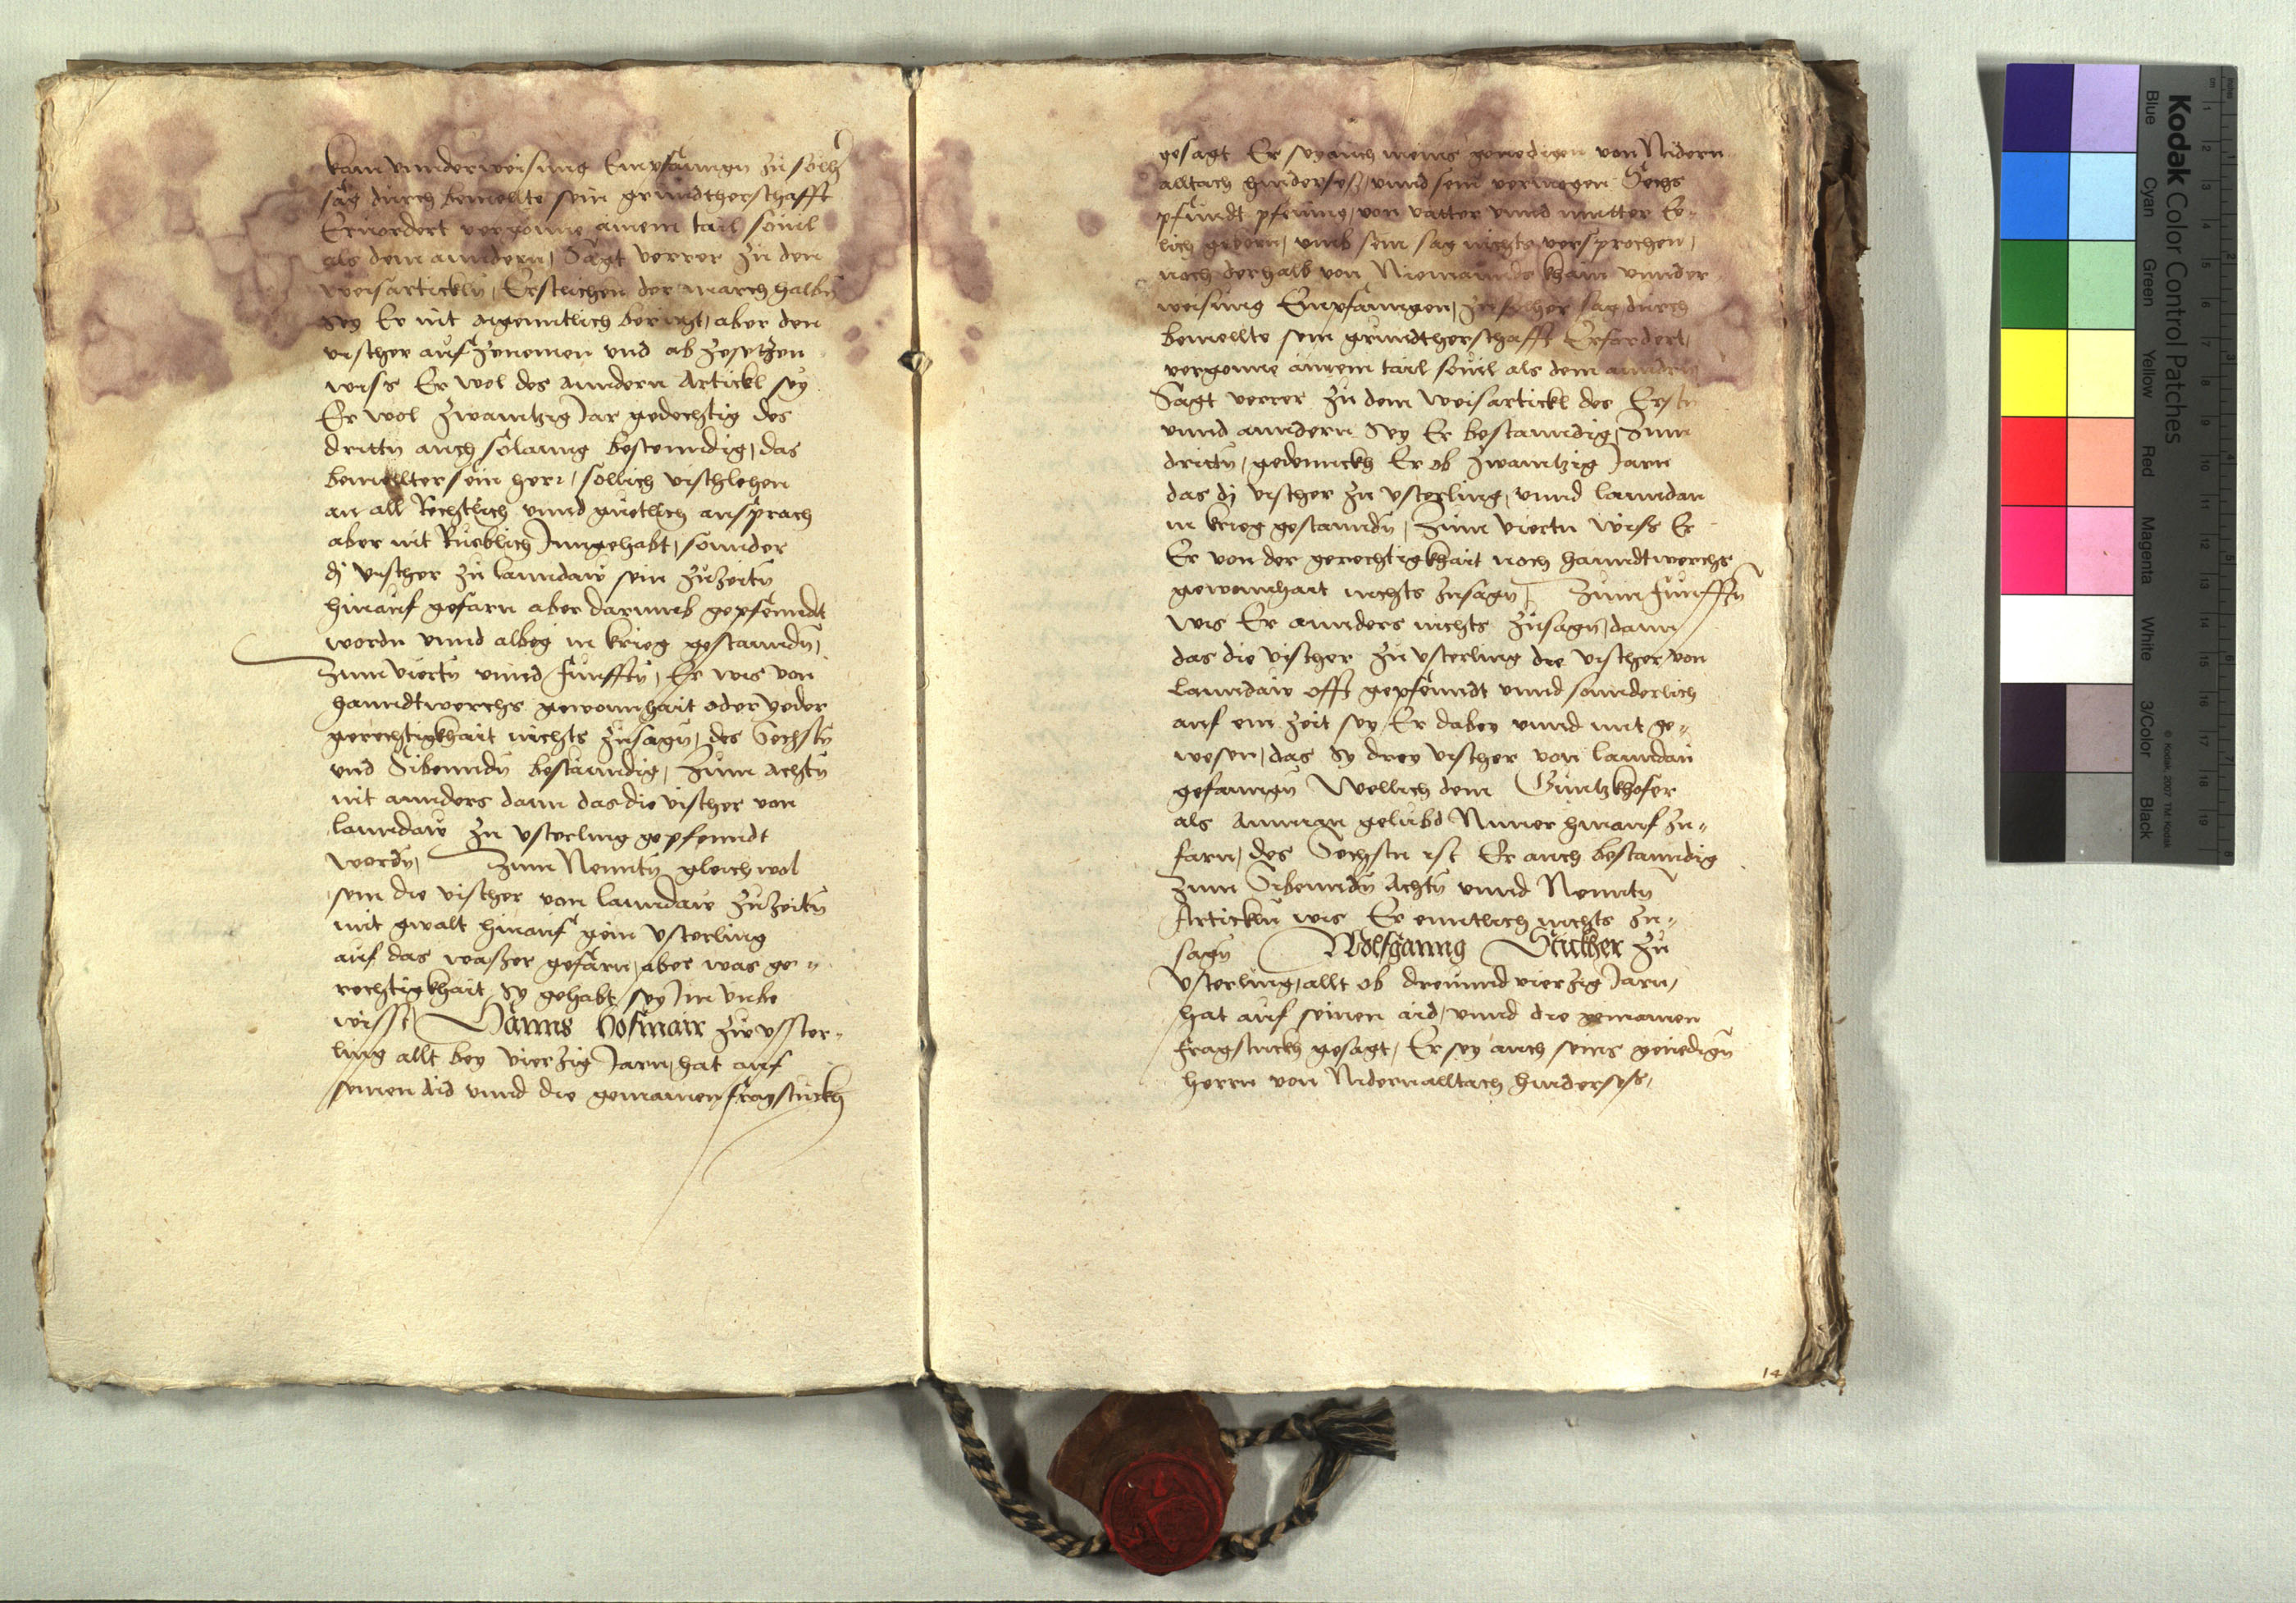 kain vnnderweisung Empfanngn zu solh
sag durch bemellte sein grundtherschafft
Eruordert vergonne ainem tail souil
als dem anndern, Sagt verrer zu den
weisartickln, Erstlichen der march halbn
sey Er nit aigenntlich bericht, aber den
vischer auf zenemen vnd ab zesetzen
wiss Er wol des anndern Artickl sey
Er wol zwaintzig Jar gedechtig des
drittn auch solanng bestenndig, das
bemellter sein herr, sollich vischlehen
an all Rechtlich vnnd guetlich ansprach
aber nit Rueblich Inngehabt, sonnder
dj vischer zu lanndaw sein zuzeitn
hinauf gefarn aber darumb gepfenndt
wordn vnnd albeg in krieg gestanndn,
Zum viertn vnnd Funfftn, Er wis von
hanndtwerchs gewonnhait oder yeder
gerechtigkhait nichts zusagn, des Sechstn
vnd Sibenndn bestanndig, Zum achtn
nit annders dann das die vischer von
lanndaw zu vsterling gepfenndt
wordn, Zum Nenntn gleichwol
sein die vischer von lanndaw zuzeitn
mit gwalt hinauf gein vsterling
auf das wasser gefarn, aber was ge-
rechtigkhait Sy gehabt sey Im vnbe
wisst, Hanns Hofmair zu vsster-
ling allt bey vierzig Jarn, hat auf
seinen aid vnnd die gemainen fragstuckh
gesagt Er sey auch meins genedigen von Nidern
alltach hinderses, vnnd sein vermogen Sechs
pfundt pfening, von vatter vnnd mutter Ee-
lich geborn, vmb sein sag nichts versprochen,
noch derhalb von Niemannde khain vnnder
weisung Empfanngen, zu solher sag durch
bemellte sein grundtherschafft Erfordert,
vergonne ainem tail souil als dem anndrn
Sagt verrer zu dem weisartickl des Erstn
vnnd anndern Sey Er bestanndig, Zum
drittn, gedennckh Er ob zwaintzig Jarn
das dj vischer zu vsterling, vnnd lanndau
in krieg gestanndn, Zum viertn wiss Er
Er von der gerechtigkhait noch hanndtwerchs
gewonnhait nichts zusagn, Zum Funfftn
wis Er annders nichts zusagn, dann
das die vischer zu vsterling die vischer von
lanndaw offt gepfenndt vnnd sonnderlich
auf ein zeit sey Er dabey vnnd mit ge-
wesen, das Sy drey vischer von lanndau
gefanngn Wellich dem Guntzkhofer
als Amman gelubd Nimer hinauf zu-
farn, des Sechstn ist Er auch bestanndig
Zum Sibenndn Achtn vnnd Nenntn
Artickln wis Er enntlich nichts zu-
sagn Wolfganng zu
vsterling, allt ob dreuundvierzig Jarn,
hat auf seinen aid, vnnd die gemainen
fragstuckh gesagt, Er sey auch seins genedign
herrn von Nidernalltach hinderses,
14
Kodak Color Control Patches
Blue Cyan Green Yellow Red Magenta White 3/Color Black